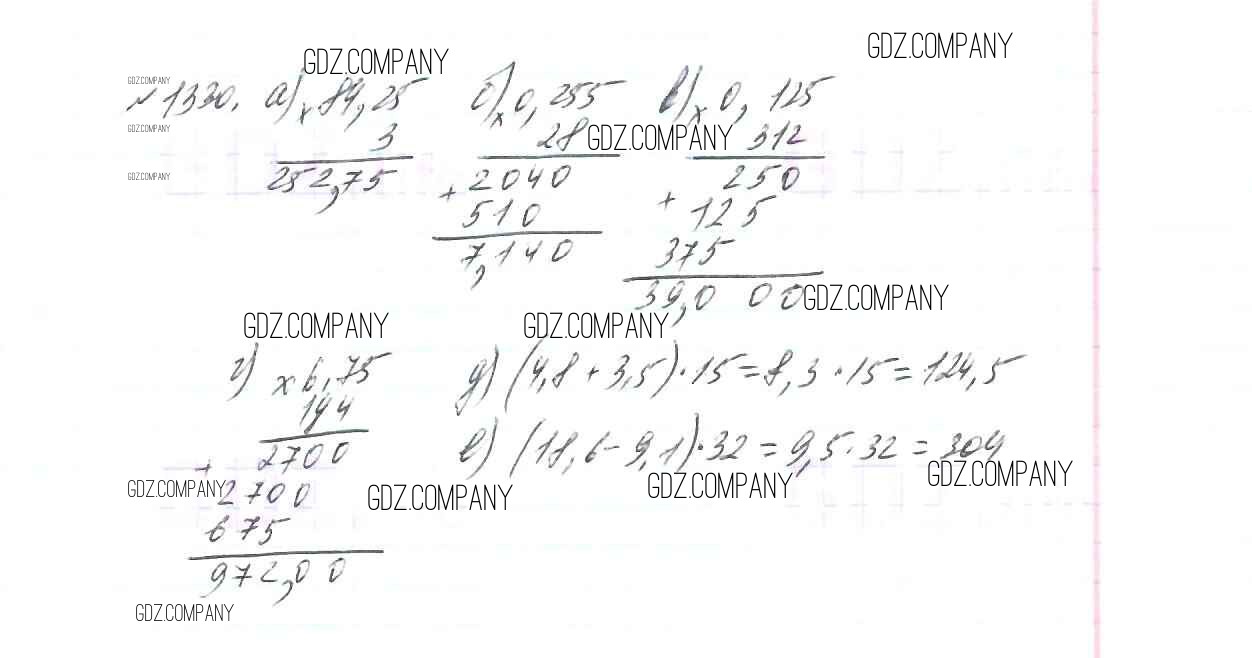 GDZ.COMPANY GDZ.COMPANY
GDZ.COMPANY
№1330. а) × 84,25 б) × 0,255 в) × 0,125
GDZ.COMPANY 3 28 GDZ.COMPANY 312
GDZ.COMPANY 252,75 + 2040 250
510 + 125
7,140 375
39,000 GDZ.COMPANY
GDZ.COMPANY GDZ.COMPANY
г) × 6,75 д) (4,8 + 3,5)·15 = 8,3·15 = 124,5
144
+ 2700 е) (18,6 - 9,1)·32 = 9,5·32 = 304
GDZ.COMPANY 2700 GDZ.COMPANY GDZ.COMPANY GDZ.COMPANY
675
972,00
GDZ.COMPANY